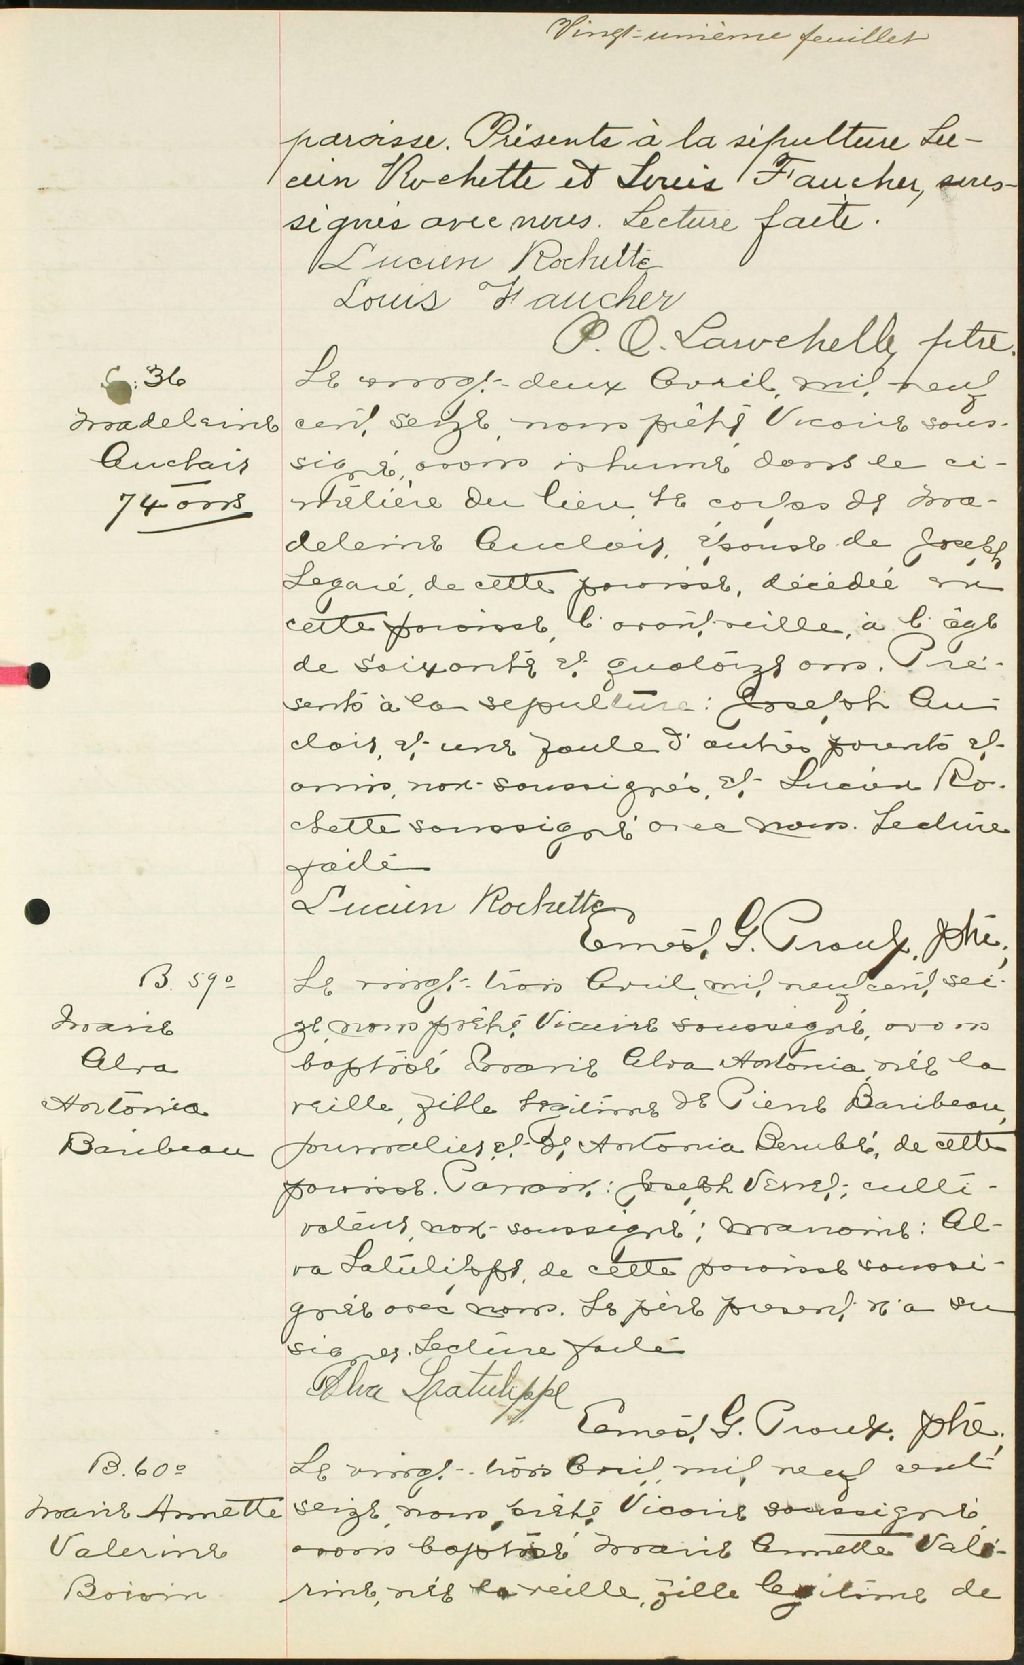 Vingt-unième feuillet
paroisse. Présents à la sépulture Lu-
cien Rochette et Louis Faucher, sous-
signés avec nous. Lecture faite.
Lucien Rochette
Louis Faucher
P. O. Larochelle, ptre.
S. 36
Madeleine
Auclair
74 ans
Le vingt-deux Avril, mil neuf
cent seize, nous prêtre Vicaire sous-
signé, avons inhumé dans le ci-
metière du lieu, le corps de Ma-
deleine Auclair, épouse de Joseph
Legaré, de cette paroisse, décédée en
cette paroisse, l'avant-veille, à l'âge
de soixante et quatorze ans. Pré-
sents à la sépulture : Joseph Au-
clair, et une foule d'autres parents et
amis, non-soussignés, et Lucien Ro-
chette soussigné avec nous. Lecture
faite
Lucien Rochette
Ernest G. Proulx, ptre.
B. 59°
Marie
Alva
Antonia
Baribeau
Le vingt-trois Avril, mil neuf cent sei-
ze, nous prêtre Vicaire soussigné, avons
baptisé Marie Alva Antonia, née la
veille, fille légitime de Pierre Baribeau,
journalier, et de Antonia Berubé, de cette
paroisse. Parrain : Joseph Verret, culti-
vateur, non-soussigné ; marraine : Al-
va Latulippe, de cette paroisse soussi-
gnée avec nous. Le père présent n'a su
signer. Lecture faite
Alva Latulippe
Ernest G. Proulx, ptre.
B. 60°
Marie Annette
Valerine
Boivin
Le vingt-trois Avril, mil neuf cent
seize, nous prêtre Vicaire soussigné,
avons baptisé Marie Annette Valé-
rine, née la veille, fille légitime de